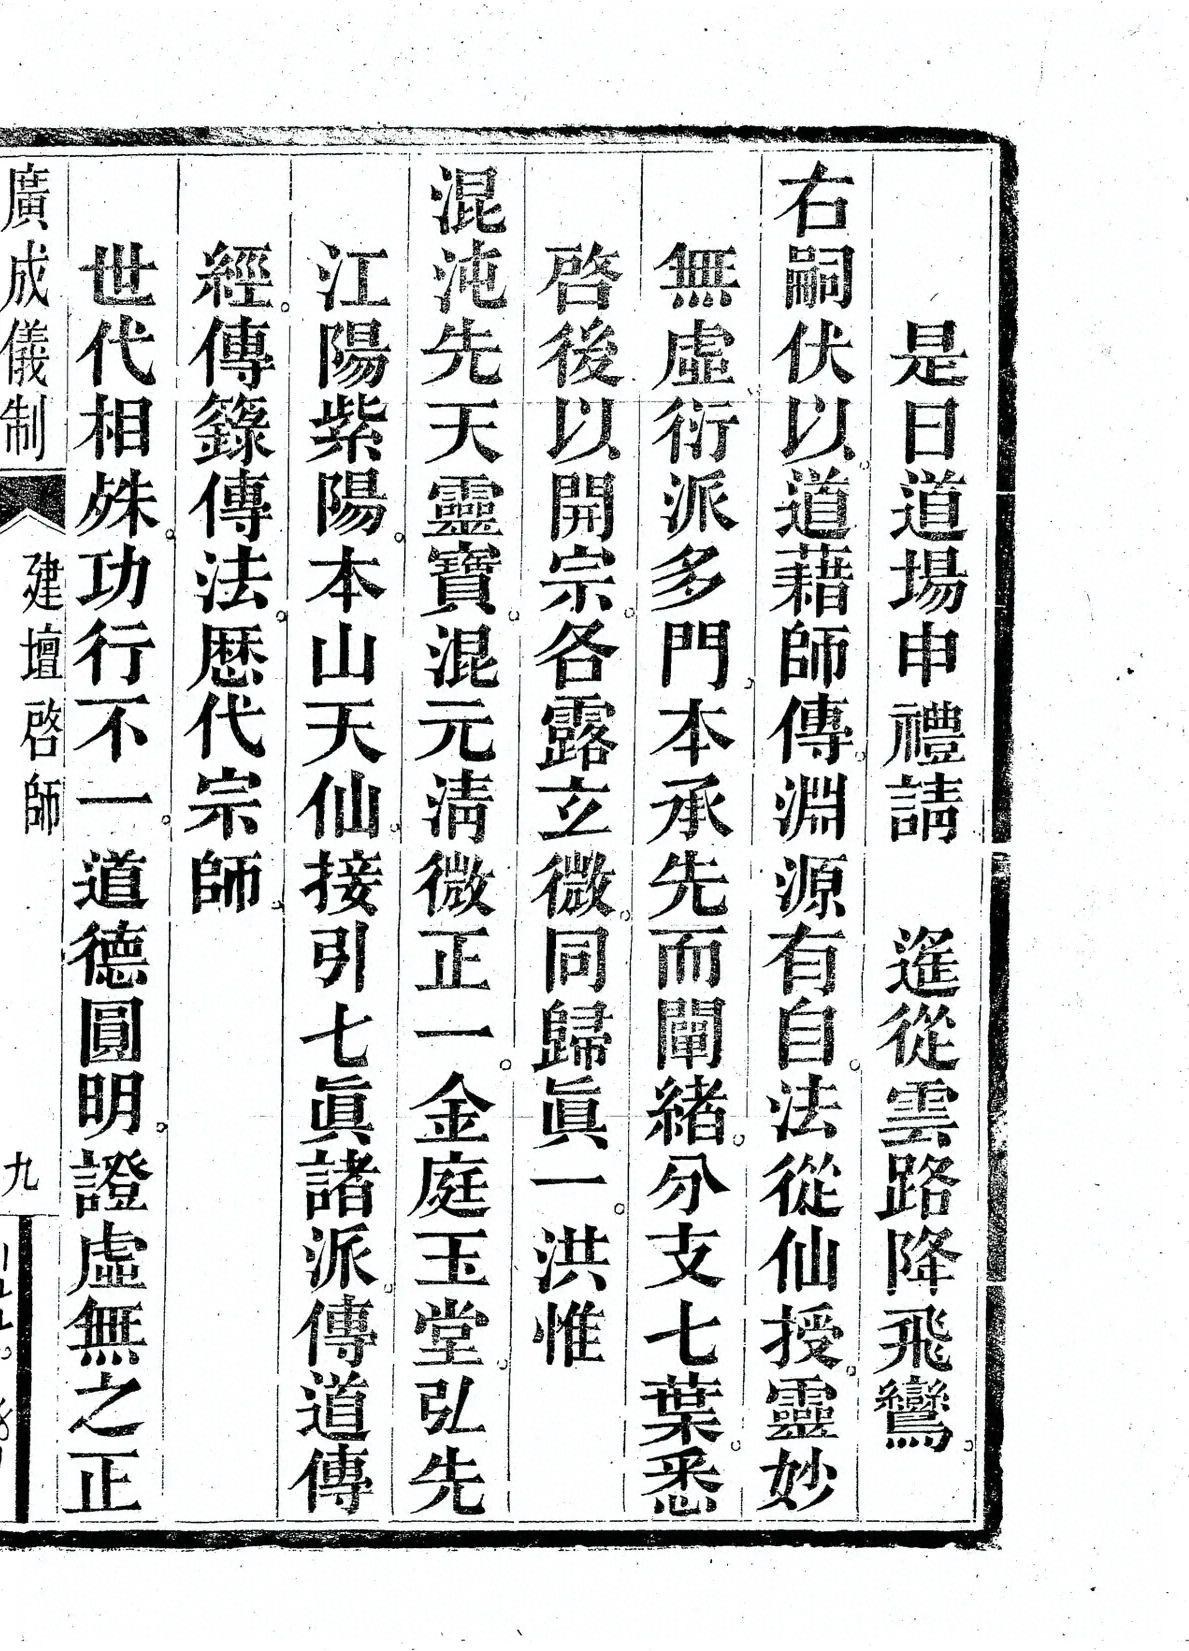 是日道場申禮請　遙從雲路降飛鸞。
右嗣伏以。道藉師傳。淵源有自。法從仙授。靈妙
無虛。衍派多門。本承先而闡緒。分支七葉。悉
啓後以開宗。各露立微。同歸眞一。洪惟
混沌先天靈寶。混元清微正一。金庭玉堂。弘先
江陽紫陽。本山天仙。接引七眞諸派。傳道傳
經。傳籙傳法。歷代宗師。
世代相殊。功行不一。道德圓明。證虛無之正
廣成儀制　建壇啓師　九